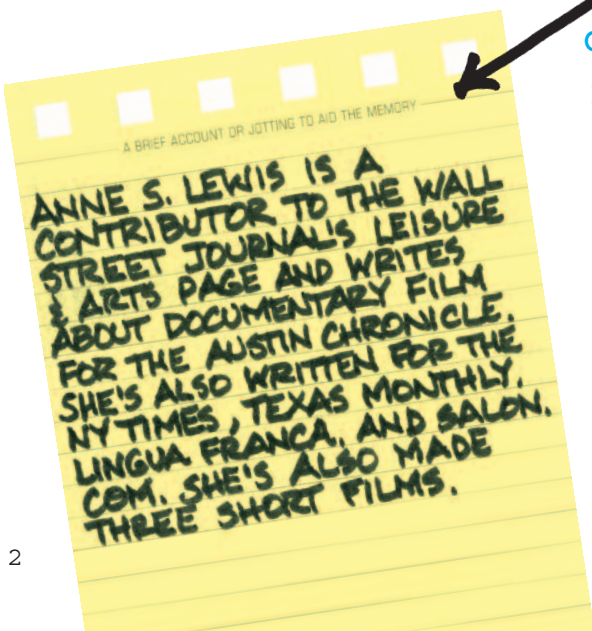 A BRIEF ACCOUNT OR JOTTING TO AID THE MEMORY
ANNE S. LEWIS IS A
CONTRIBUTOR TO THE WALL
STREET JOURNAL'S LEISURE
& ARTS PAGE AND WRITES
ABOUT DOCUMENTARY FILM
FOR THE AUSTIN CHRONICLE.
SHE'S ALSO WRITTEN FOR THE
NY TIMES, TEXAS MONTHLY,
LINGUA FRANCA, AND SALON.
COM. SHE'S ALSO MADE
THREE SHORT FILMS.
2